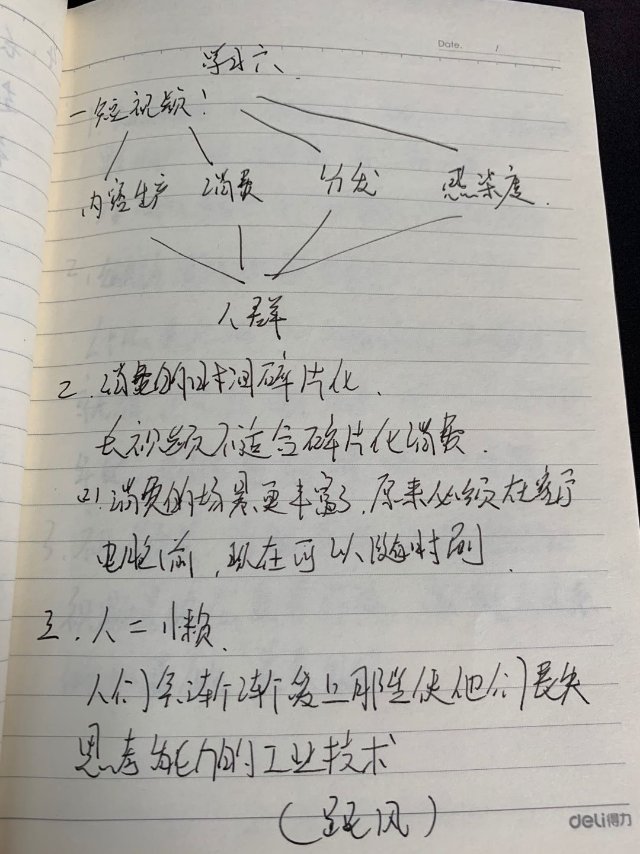 Date. /
学习六
一 短视频!
内容生产 消费 分发 感染度.
人群
二. 消费的时间碎片化.
长视频不适合碎片化消费.
(2) 消费的场景更丰富了,原来必须在客厅
电脑前,现在可以随时刷.
三. 人二
人们会渐渐爱上那些使他们丧失
思考能力的工业技术
(跟风)
deli得力